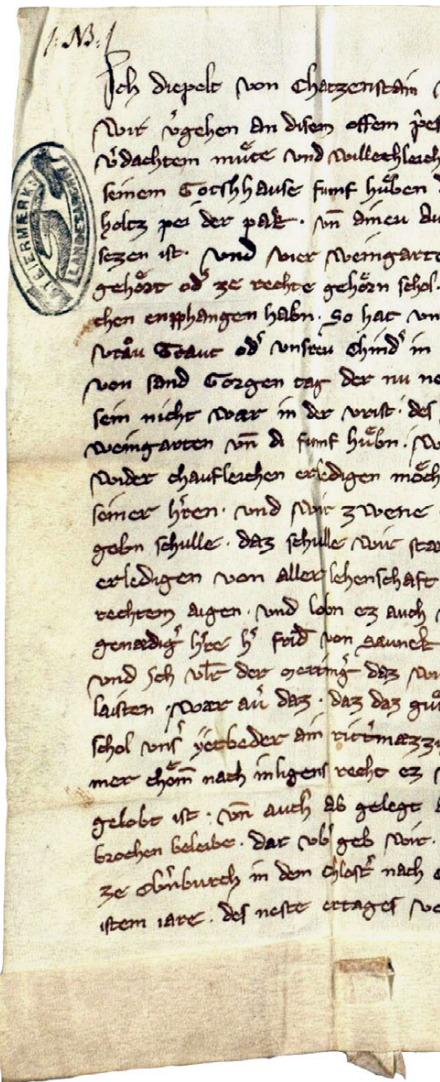 N3.
Ich diepolt von Chatzenstain
wir v͛gehen an disem offem
v͛dachtem můte vnd willechleich
seinem Gotshause fumf hůben
holtz pei der pak · vn̄ ainev
sezen ist · vnd vier weingarte
gehőrt od͛ ze rechte gehőrn schol ·
chen enphangen habn · So hat vn
vraw Traut od͛ vnsrev Chind͛ in
von sand Gorgen tag der nu ne
sein nicht war in der vrist · des
weingarten vn̄ di fumf hůbn ·
wider chaufleichen erledigen mőch
seiner h͛ren · vnd wir zwene
gebn schulle · daz schulle wir
erledigen von aller lehenschaft
rechtem aigen · vnd lobn ez auch
genædig͛ h͛re h͛ frid͛ von saunek
vnd Ich vlr̄ der merring͛ daz
laisten · war au͛ daz · daz daz
schol vns͛ yetweder ain
mer chőm̄ nach inligens recht ez
gelobt ist · vn̄ auch ab gelegt
brochen beleibe · dar vb͛ geb wir ·
ze Obn̄burch in dem chlost͛ nach
istem iare · des neste ertages
STEIERMÆRK
LANDES